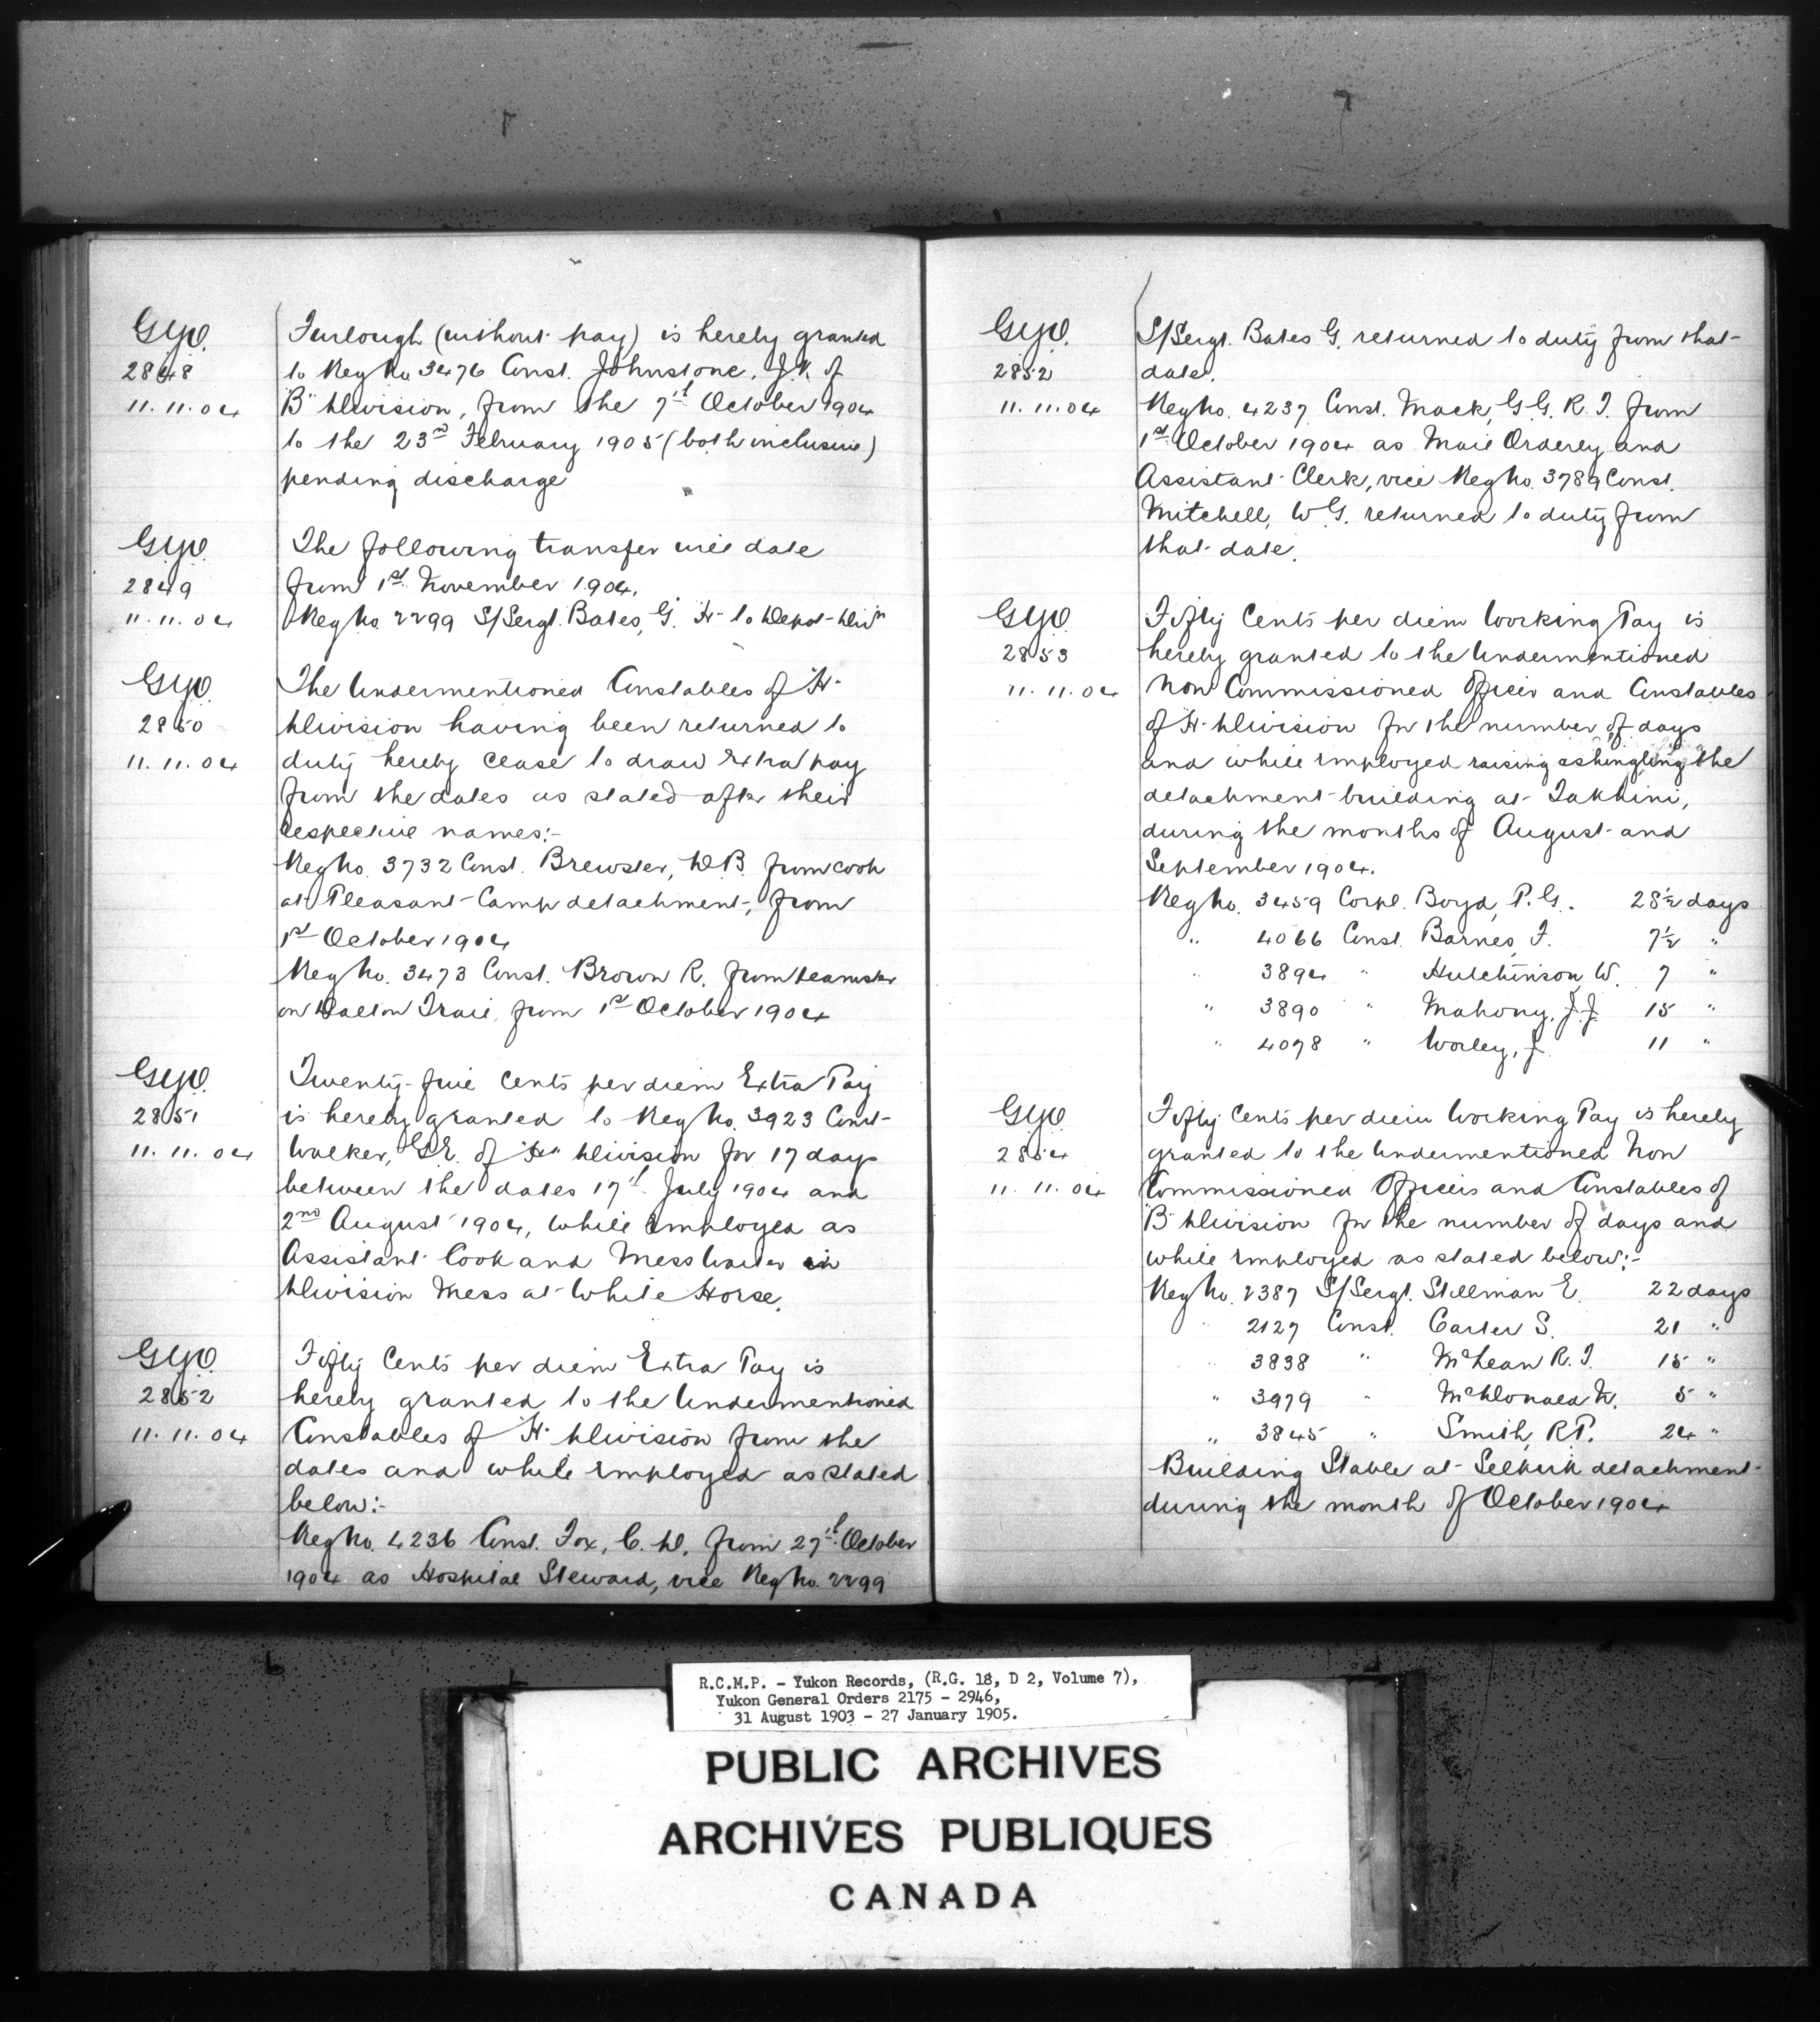 G.Y.O.
2848
11.11.04
Furlough (without pay) is hereby granted
to Reg No 3476 Const. Johnstone, J.K. of
"B" Division, from the 7th October 1904
to the 23rd February 1905 (both inclusive)
pending discharge
G.Y.O.
2849
11.11.04
The following transfer will date
from 1st November 1904.
Reg No 2299 S/Sergt. Bates, G. "H" to Depot Divn
G.Y.O.
2850
11.11.04
The Undermentioned Constables of "H"
Division having been returned to
duty hereby cease to draw Extra pay
from the dates as stated after their
respective names:-
Reg No. 3732 Const. Brewster, D.B. from cook
at Pleasant Camp detachment, from
1st October 1904
Reg No. 3473 Const. Brown R. from teamster
on Dalton Trail, from 1st October 1904
G.Y.O.
2851
11.11.04
Twenty-five Cents per diem Extra Pay
is hereby granted to Reg No. 3923 Const.
Walker, G.E. of "H" Division for 17 days
between the dates 17th July 1904 and
2nd August 1904, while Employed as
Assistant Cook and Mess Waiter in
Division Mess at White Horse.
G.Y.O.
2852
11.11.04
Fifty Cents per diem Extra Pay is
hereby granted to the Undermentioned
Constables of "H" Division from the
dates and while Employed as stated
below:-
Reg No. 4236 Const. Fox, C.D. from 27th October
1904 as Hospital Steward, vice Reg No. 2299
G.Y.O.
2852
11.11.04
S/Sergt. Bates G. returned to duty from that
date.
Reg No. 4237 Const. Mack, G.G.R.J. from
1st October 1904 as Mail Orderly and
Assistant Clerk, vice Reg No. 3789 Const.
Mitchell, W.G. returned to duty from
that date.
G.Y.O.
2853
11.11.04
Fifty Cents per diem Working Pay is
hereby granted to the Undermentioned
Non Commissioned Officer and Constables
of "H" Division for the number of days
and while Employed raising & shingling the
detachment building at Takhini,
during the months of August and
September 1904.
Reg No. 3459 Corpl. Boyd, P.G. 28½ days
" 4066 Const. Barnes, F. 7½ "
" 3894 " Hutchinson, W. 7 "
" 3890 " Mahony, J.J. 15 "
" 4078 " Worley, J. 11 "
G.Y.O.
2854
11.11.04
Fifty Cents per diem Working Pay is hereby
granted to the Undermentioned Non
Commissioned Officers and Constables of
"B" Division for the number of days and
while Employed as stated below:-
Reg No. 2387 S/Sergt. Stillman E. 22 days
" 2127 Const. Carter S. 21 "
" 3838 " McLean R.J. 15 "
" 3979 " McDonald N. 5 "
" 3845 " Smith, R.P. 24 "
Building Stable at Selkirk detachment
during the month of October 1904
R.C.M.P. - Yukon Records, (R.G. 18, D 2, Volume 7),
Yukon General Orders 2175 - 2946,
31 August 1903 - 27 January 1905.
PUBLIC ARCHIVES
ARCHIVES PUBLIQUES
CANADA